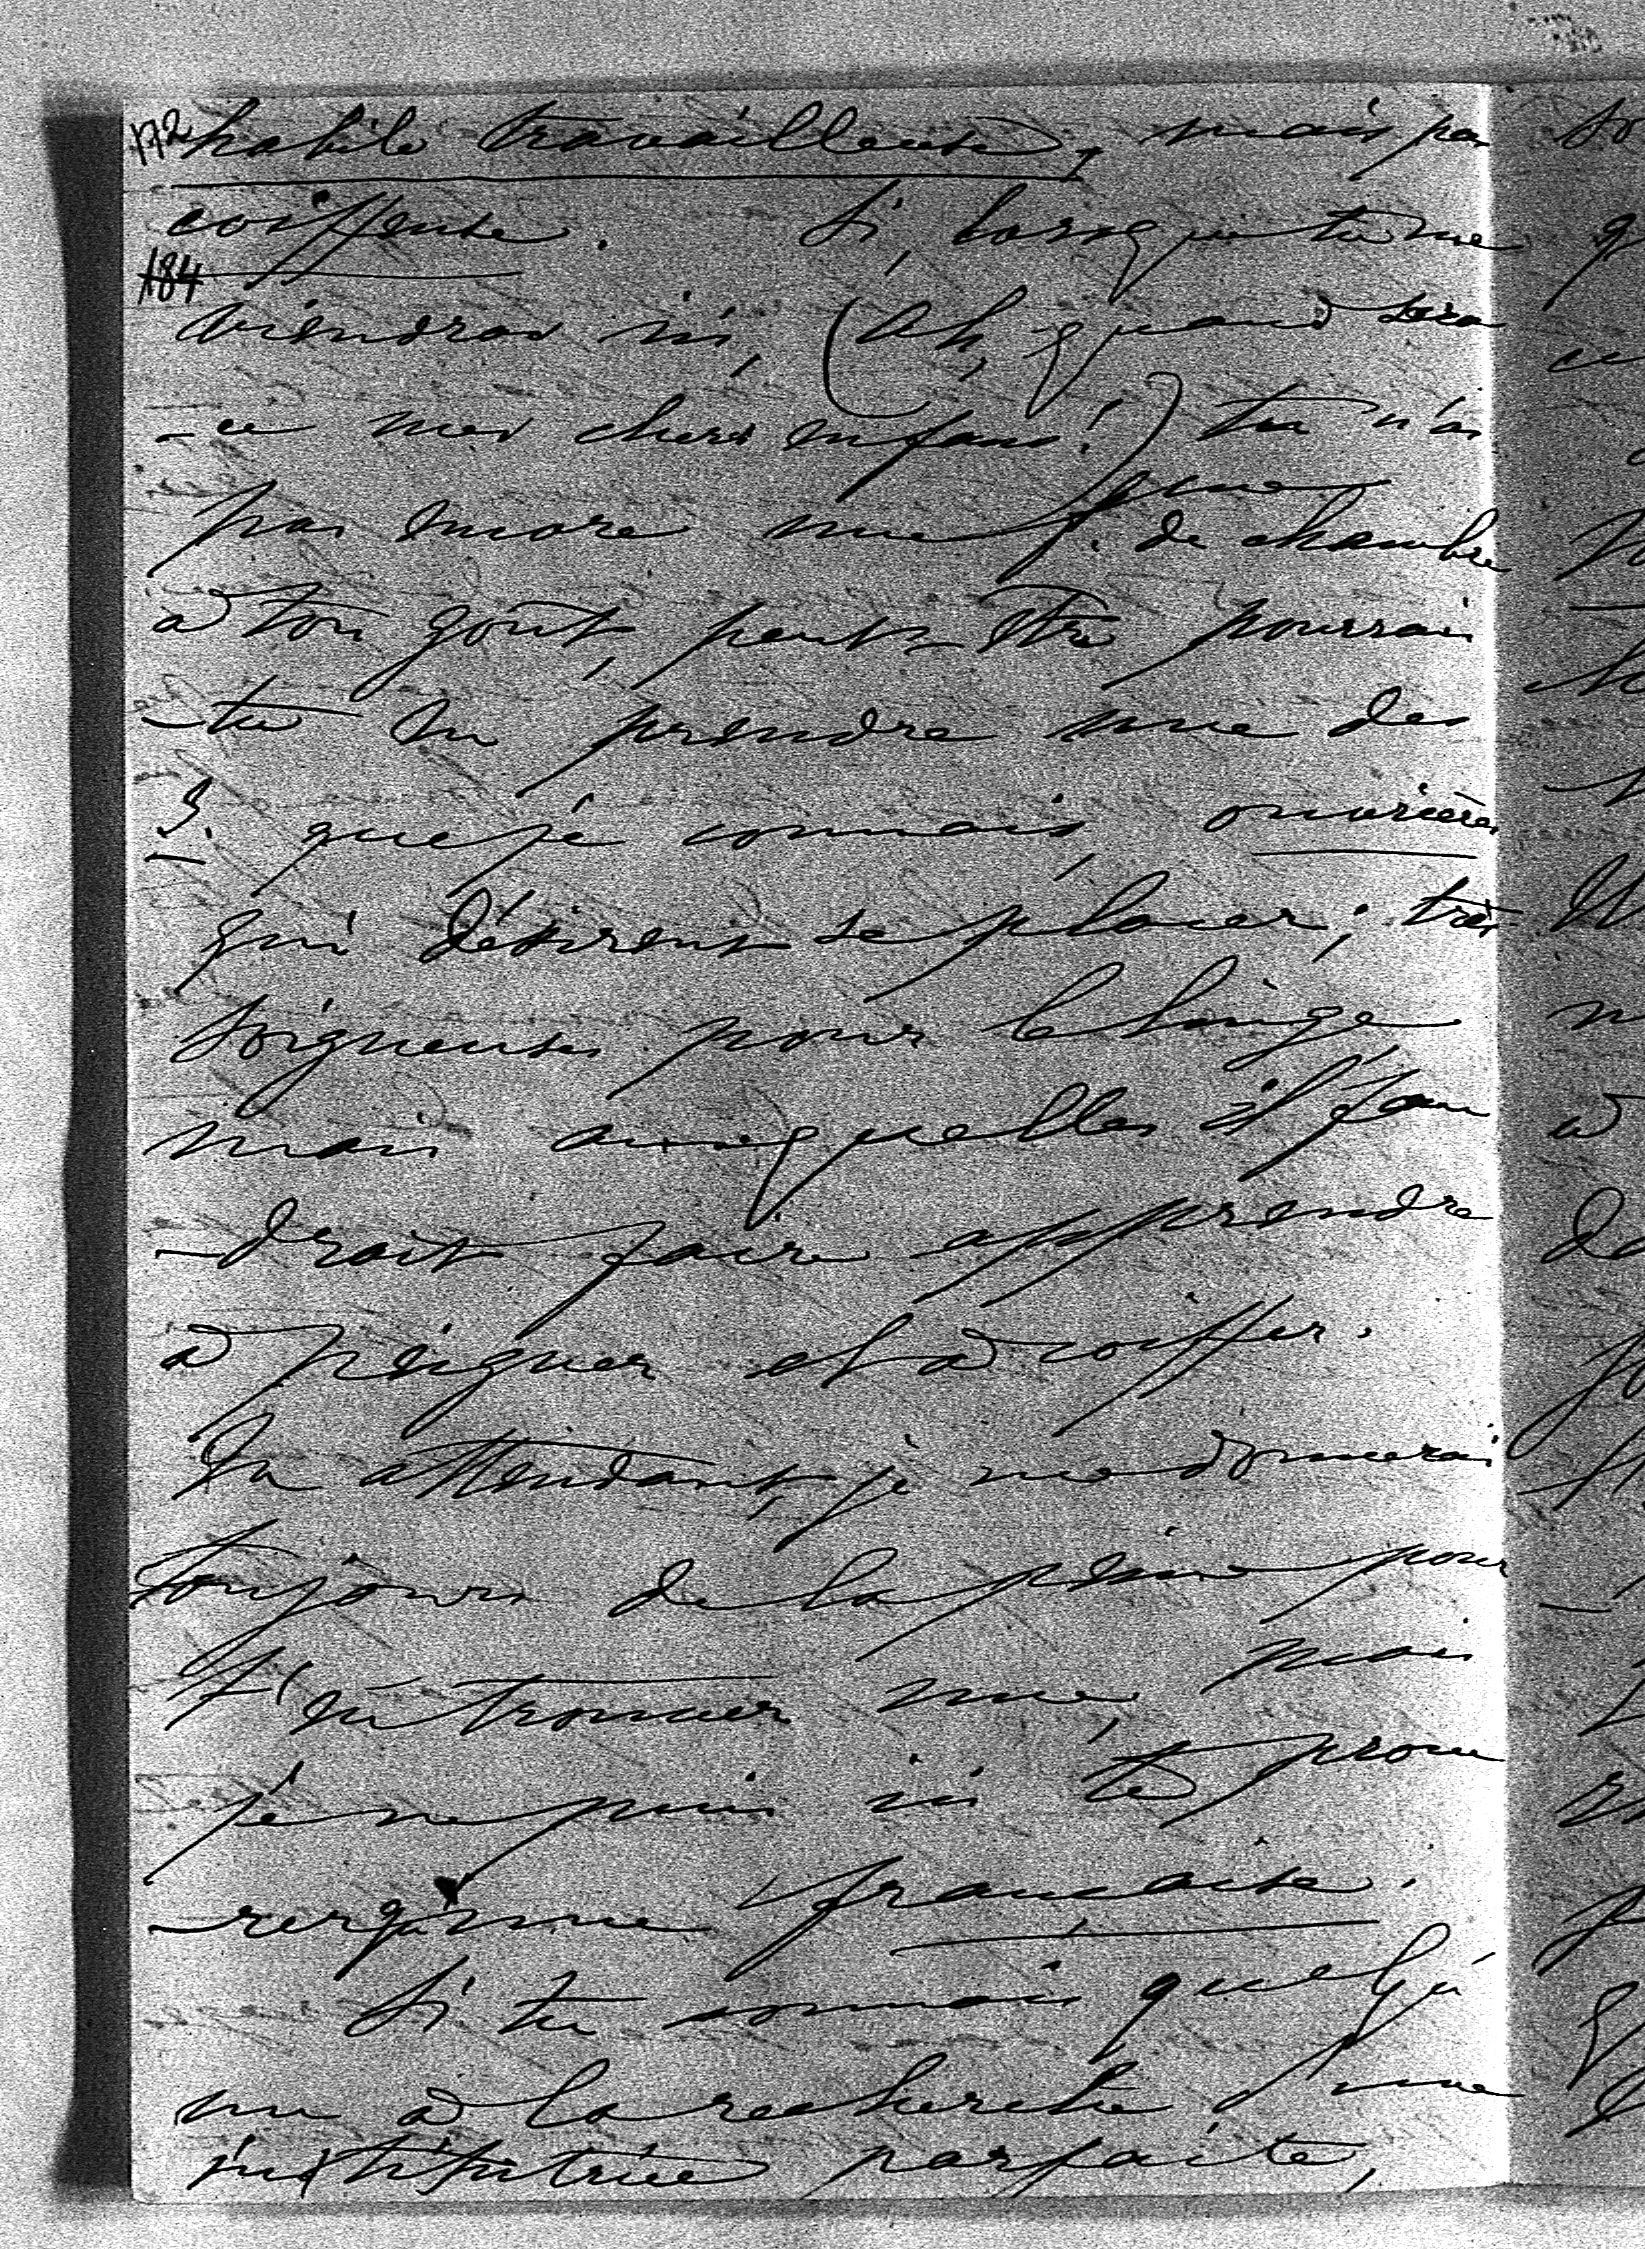 172 habile travailleuse, mais pas
coiffeuse. Si, lorsque tu me
184
viendras ici, (ah, quand sera
-ce mes chers enfans!) tu n'as
pas encore une f. de chambre
à ton goût, peut-être pourrais
-tu en prendre une des
3. que je connais, ouvrières
qui désirent se placer; très
soigneuses pour le linge
mais auxquelles il fau
-drait faire apprendre
à peigner et à coiffer.
En attendant, je me donnerai
toujours de la peine pour
t'en trouver une, mais
je ne puis ici te procu
-rer qu'une française.
Si tu connais quelqu'
un à la recherche d'une
institutrice parfaite,